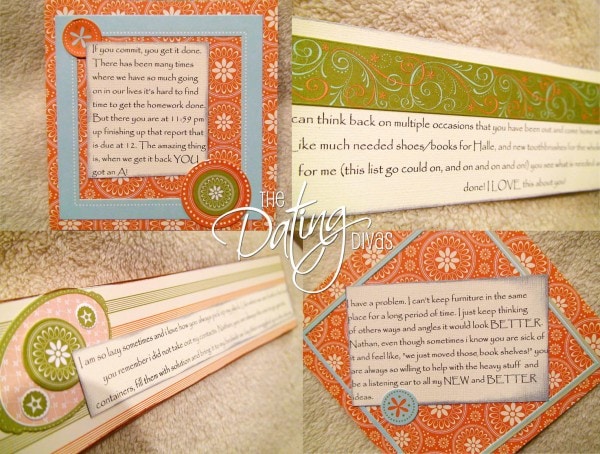 If you commit, you get it done.
There has been many times
where we have so much going
on in our lives it's hard to find
time to get the homework done.
But there you are at 11:59 pm
up finishing up that report that
is due at 12. The amazing thing
is, when we get it back YOU
got an A!
can think back on multiple occasions that you have been out and come home
ike much needed shoes/books for Halle, and new toothbrushes for the
for me (this list go could on, and on and on and on!) you see what is needed
done! I LOVE this about you!
THE
Dating
DIVAS
I am so lazy sometimes and i love how you always
you remember i did not take out my contacts.
containers, fill them with solution and bring it to my
have a problem. I can't keep furniture in the same
place for a long period of time. I just keep thinking
of others ways and angles it would look BETTER.
Nathan, even though sometimes i know you are sick of
it and feel like, "we just moved those book shelves!" you
are always so willing to help with the heavy stuff and
be a listening ear to all my NEW and BETTER
ideas.